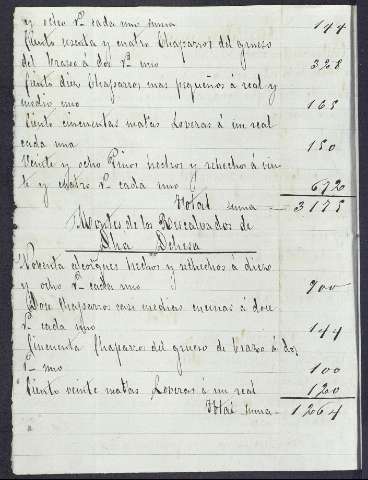 y ocho r.s cada uno suma 144
Ciento sesenta y cuatro Chaparros del grueso
del brazo a dos r.s uno 328
Ciento diez Chaparros mas pequeños á real y
medio uno 165
Ciento cincuentas matas Loveras á un real
cada una 150
Veinte y ocho Pinos hechos y rehechos á vein
te y cuatro r.s cada uno 672
Total suma 3175
Montes de los Rescalvados de
Dha Dehesa
Noventa alcorques hechos y rehechos á diez
y ocho r.s cada uno 700
Doce Chaparros casi medias encinas á doce
r.s cada uno 144
Cincuenta Chaparros del grueso de brazo á dos
r.s uno 100
Ciento veinte matas Loveras á un real 120
Total suma 1264